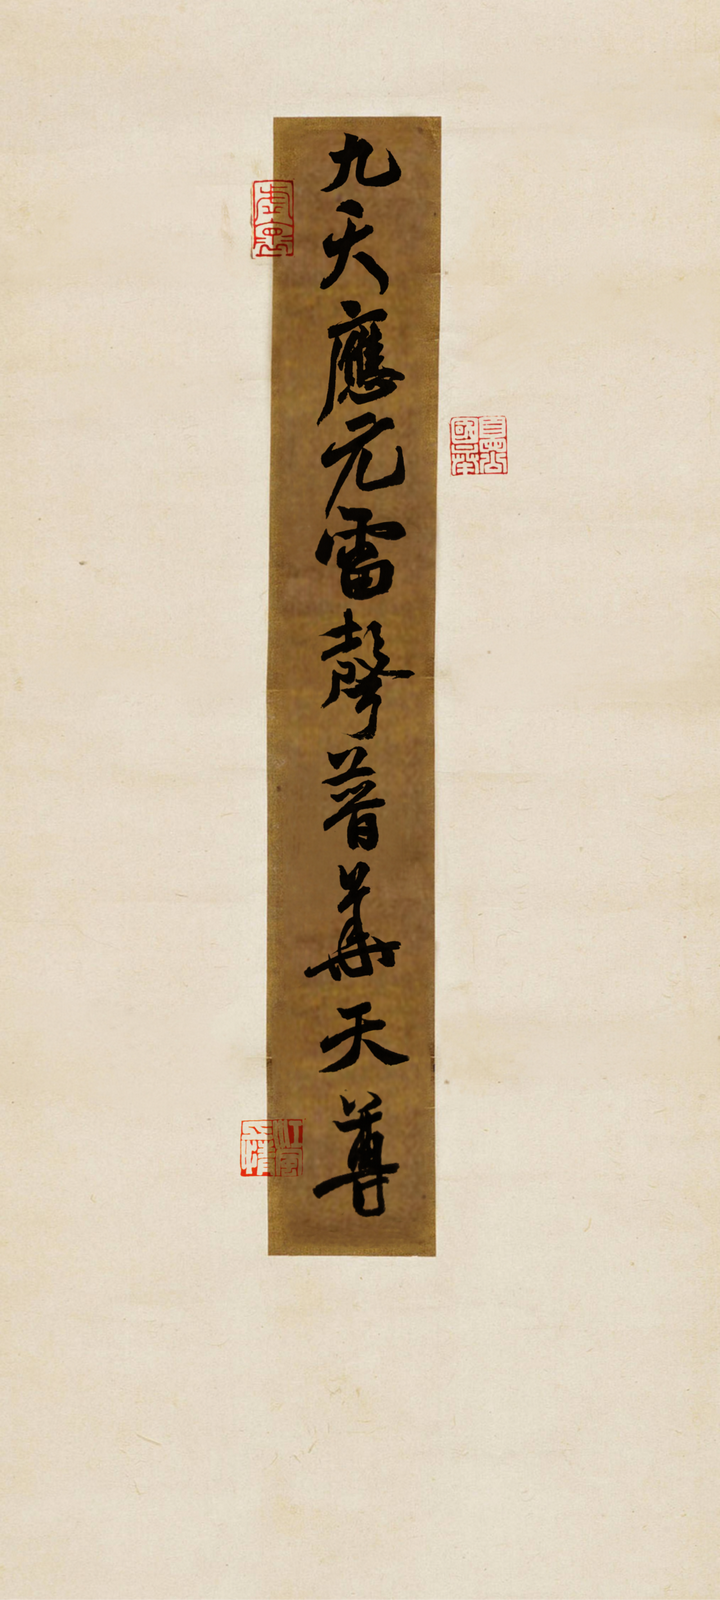 九天應元雷聲普華天尊